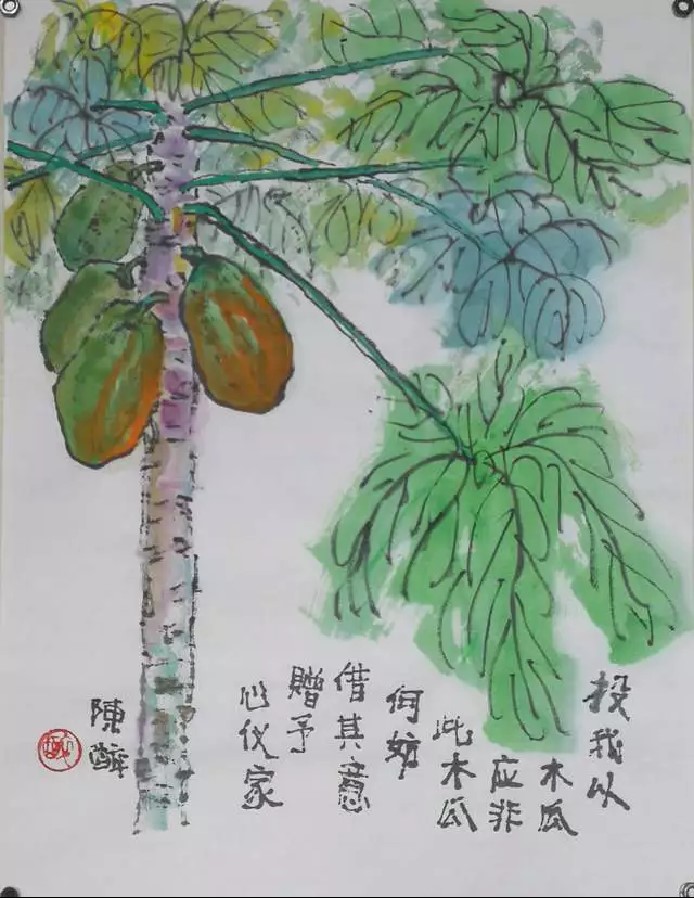 投我以
木瓜
应非
此木瓜
何妨
借其意
赠予
心仪家
陳醉